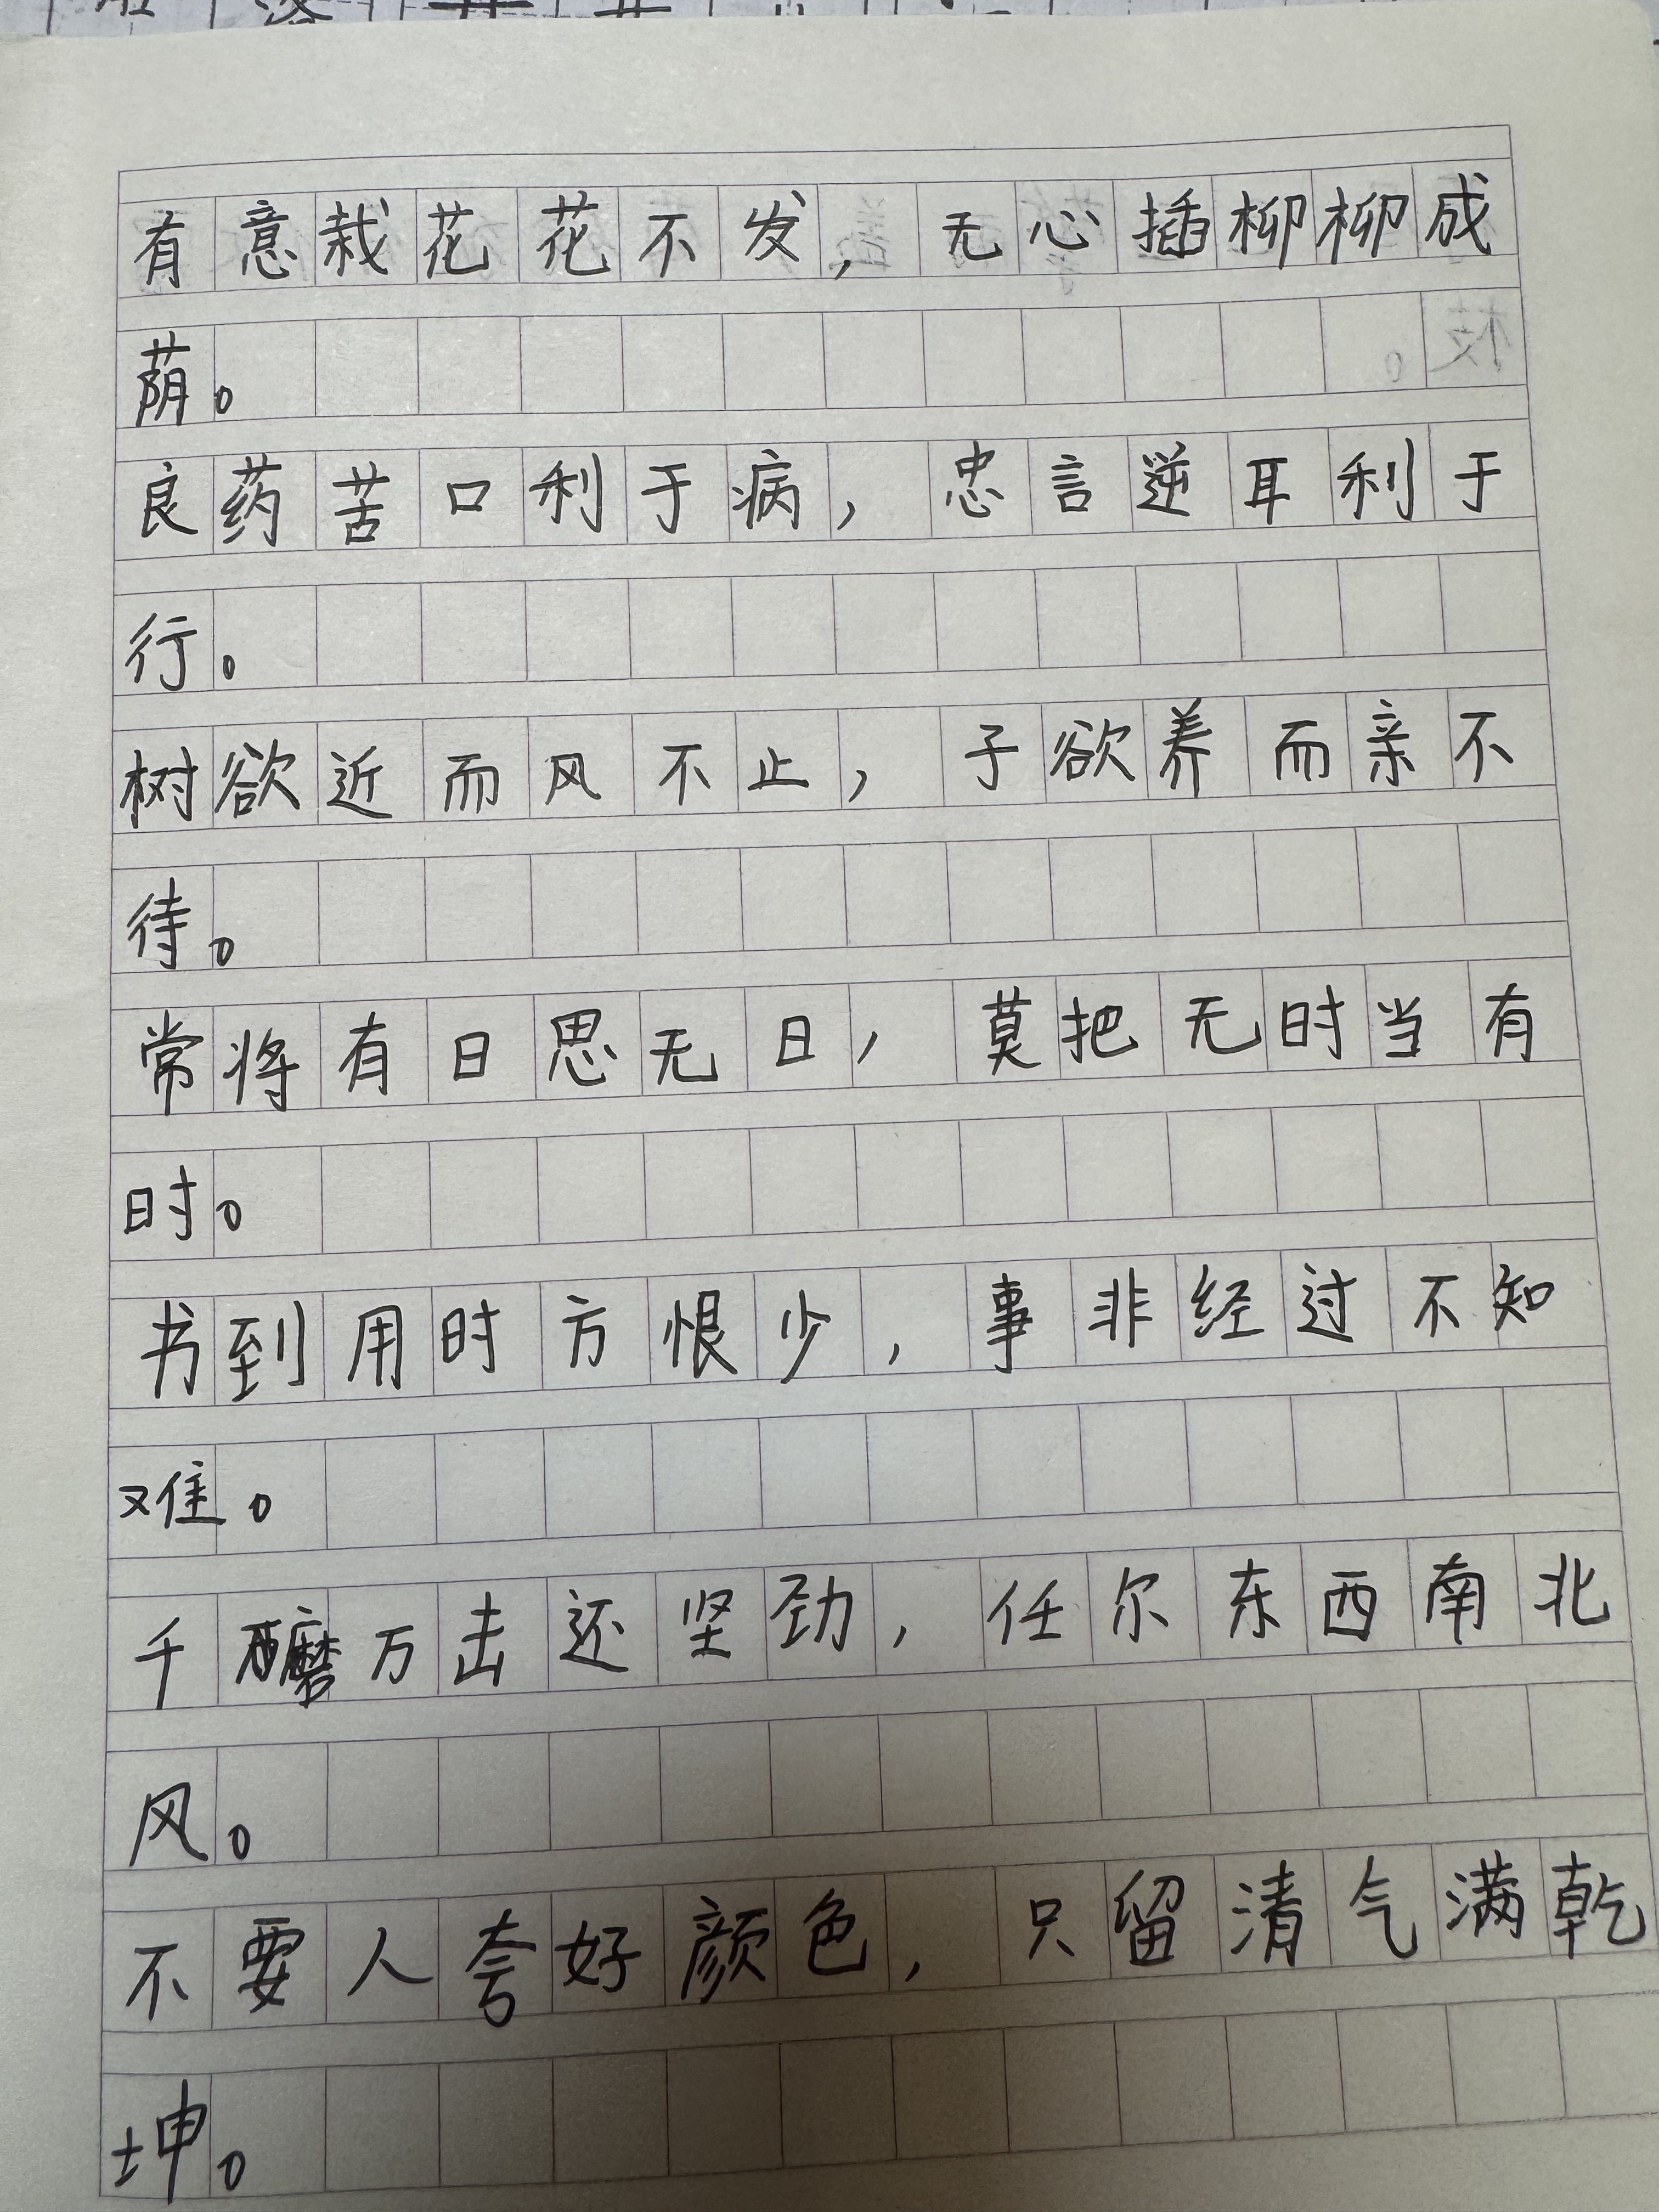 有意栽花花不发，无心插柳柳成
荫。
良药苦口利于病，忠言逆耳利于
行。
树欲近而风不止，子欲养而亲不
待。
常将有日思无日，莫把无时当有
时。
书到用时方恨少，事非经过不知
难。
千磨万击还坚劲，任尔东西南北
风。
不要人夸好颜色，只留清气满乾
坤。